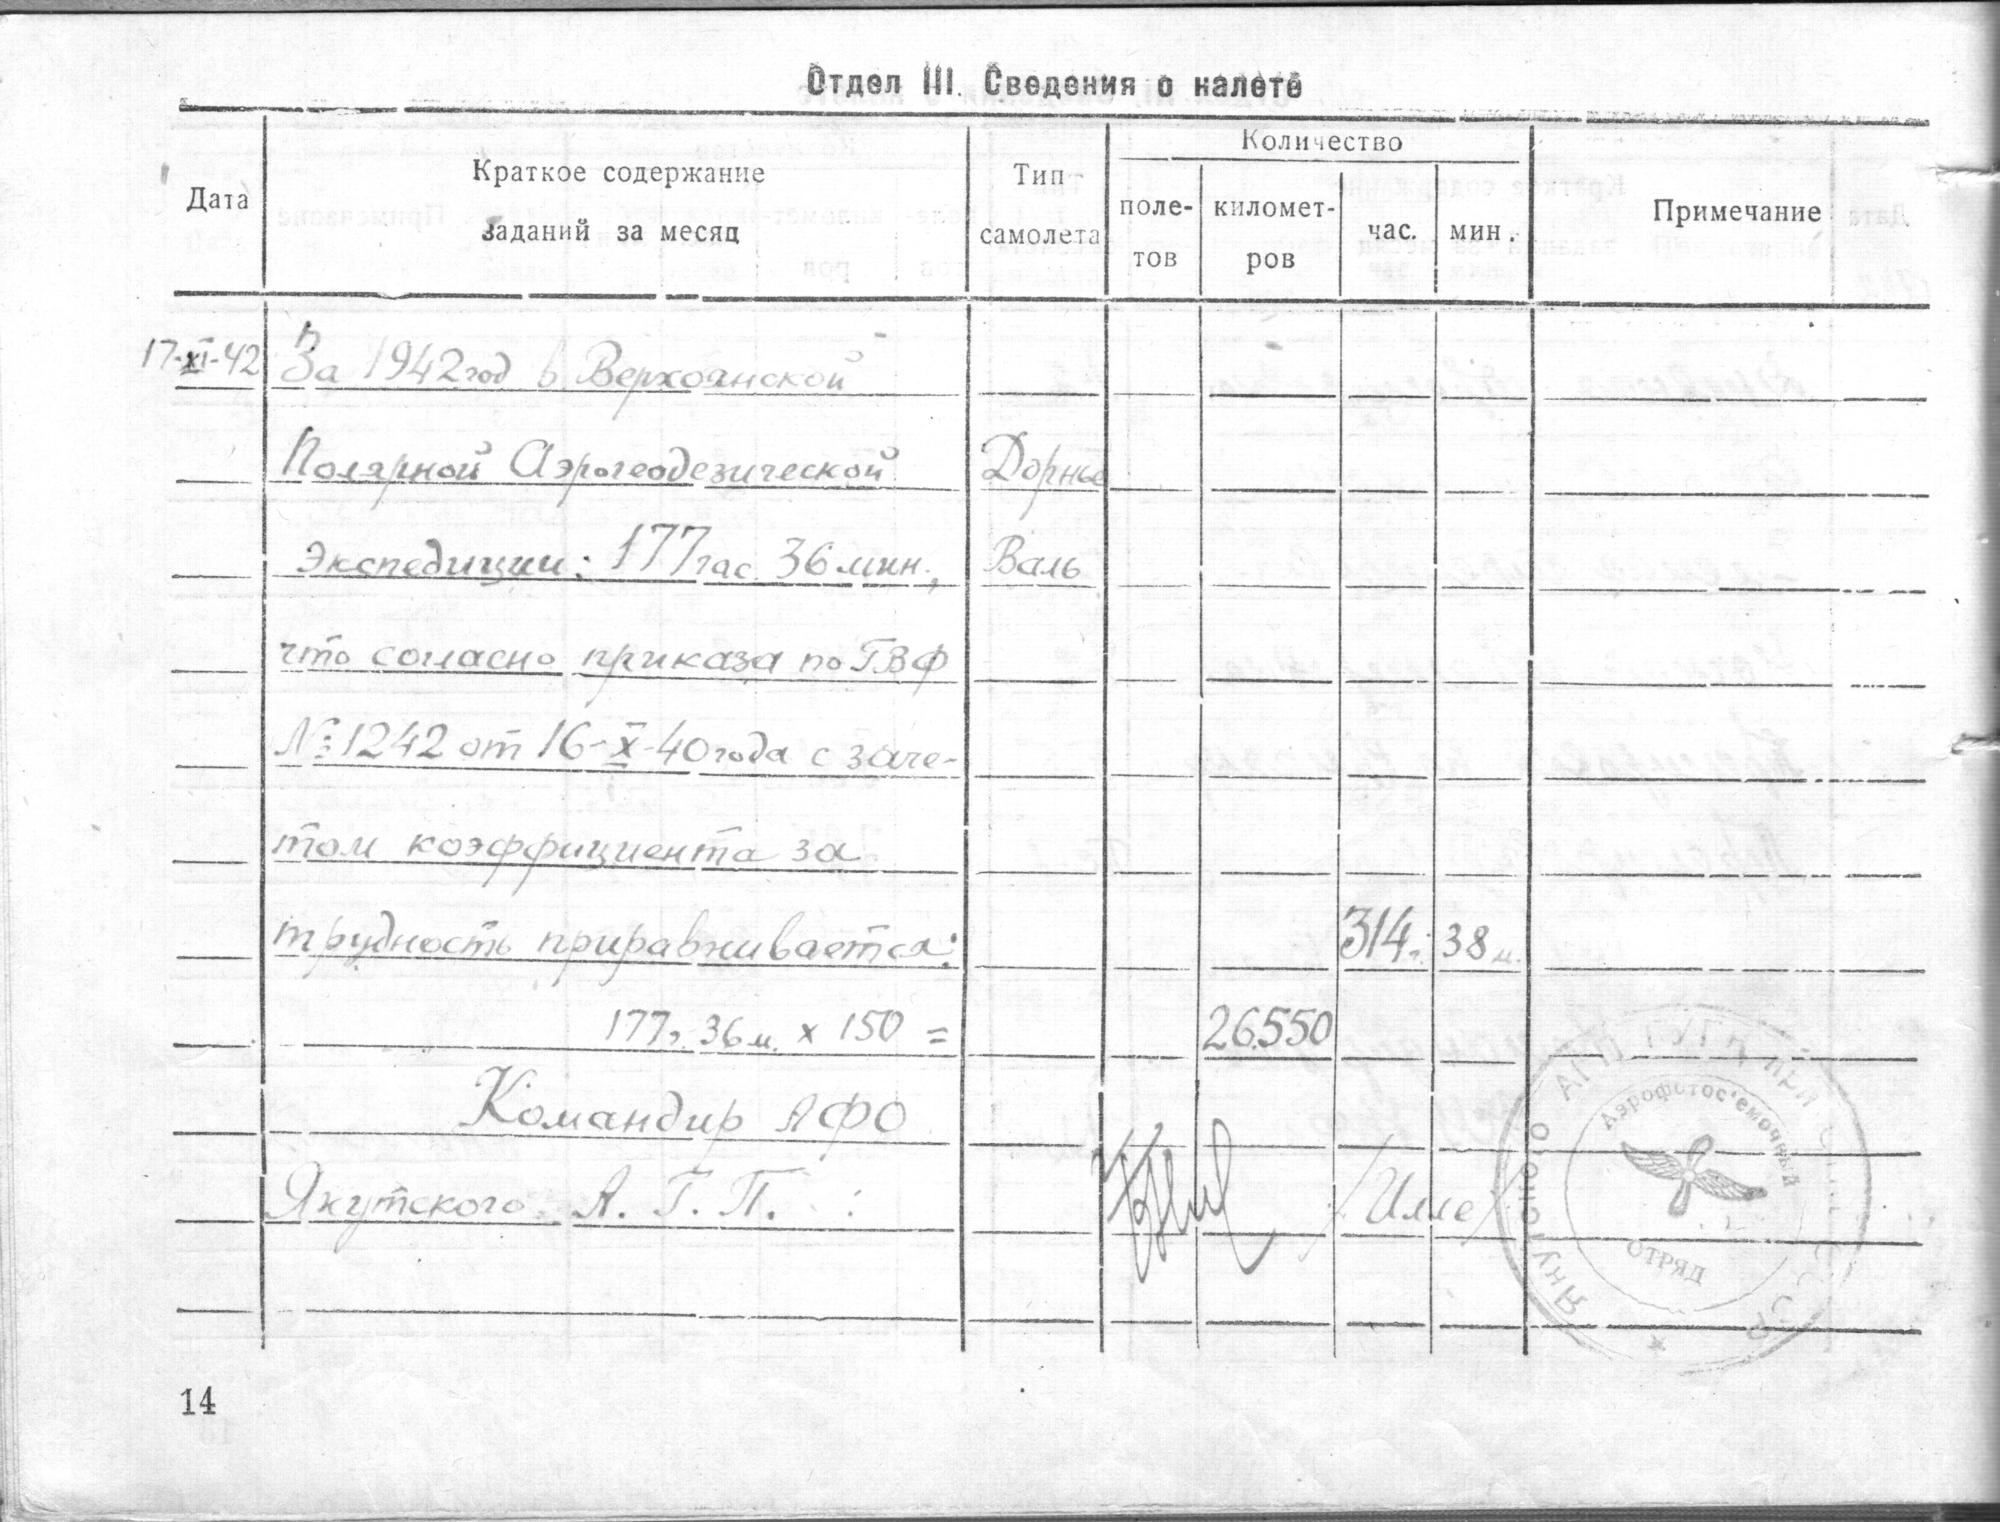 Отдел III. Сведения о налете
Дата
Краткое содержание
заданий за месяц
Тип
самолета
Количество
поле-
тов
километ-
ров
час.
мин.
Примечание
17-XI-42 За 1942 год в Верхоянской
Полярной Аэрогеодезической Дорнье
Экспедиции: 177 час. 36 мин., Валь
что согласно приказа по ГВФ
№ 1242 от 16-X-40 года с заче-
том коэффициента за
трудность приравнивается: 314ч. 38м.
177ч. 36м. х 150 = 26.550
Командир АФО
Якутского А. Г. П. /Илле/
Якутского АГП ГУГК при СНК СССР
Аэрофотос'емочный
ОТРЯД
14